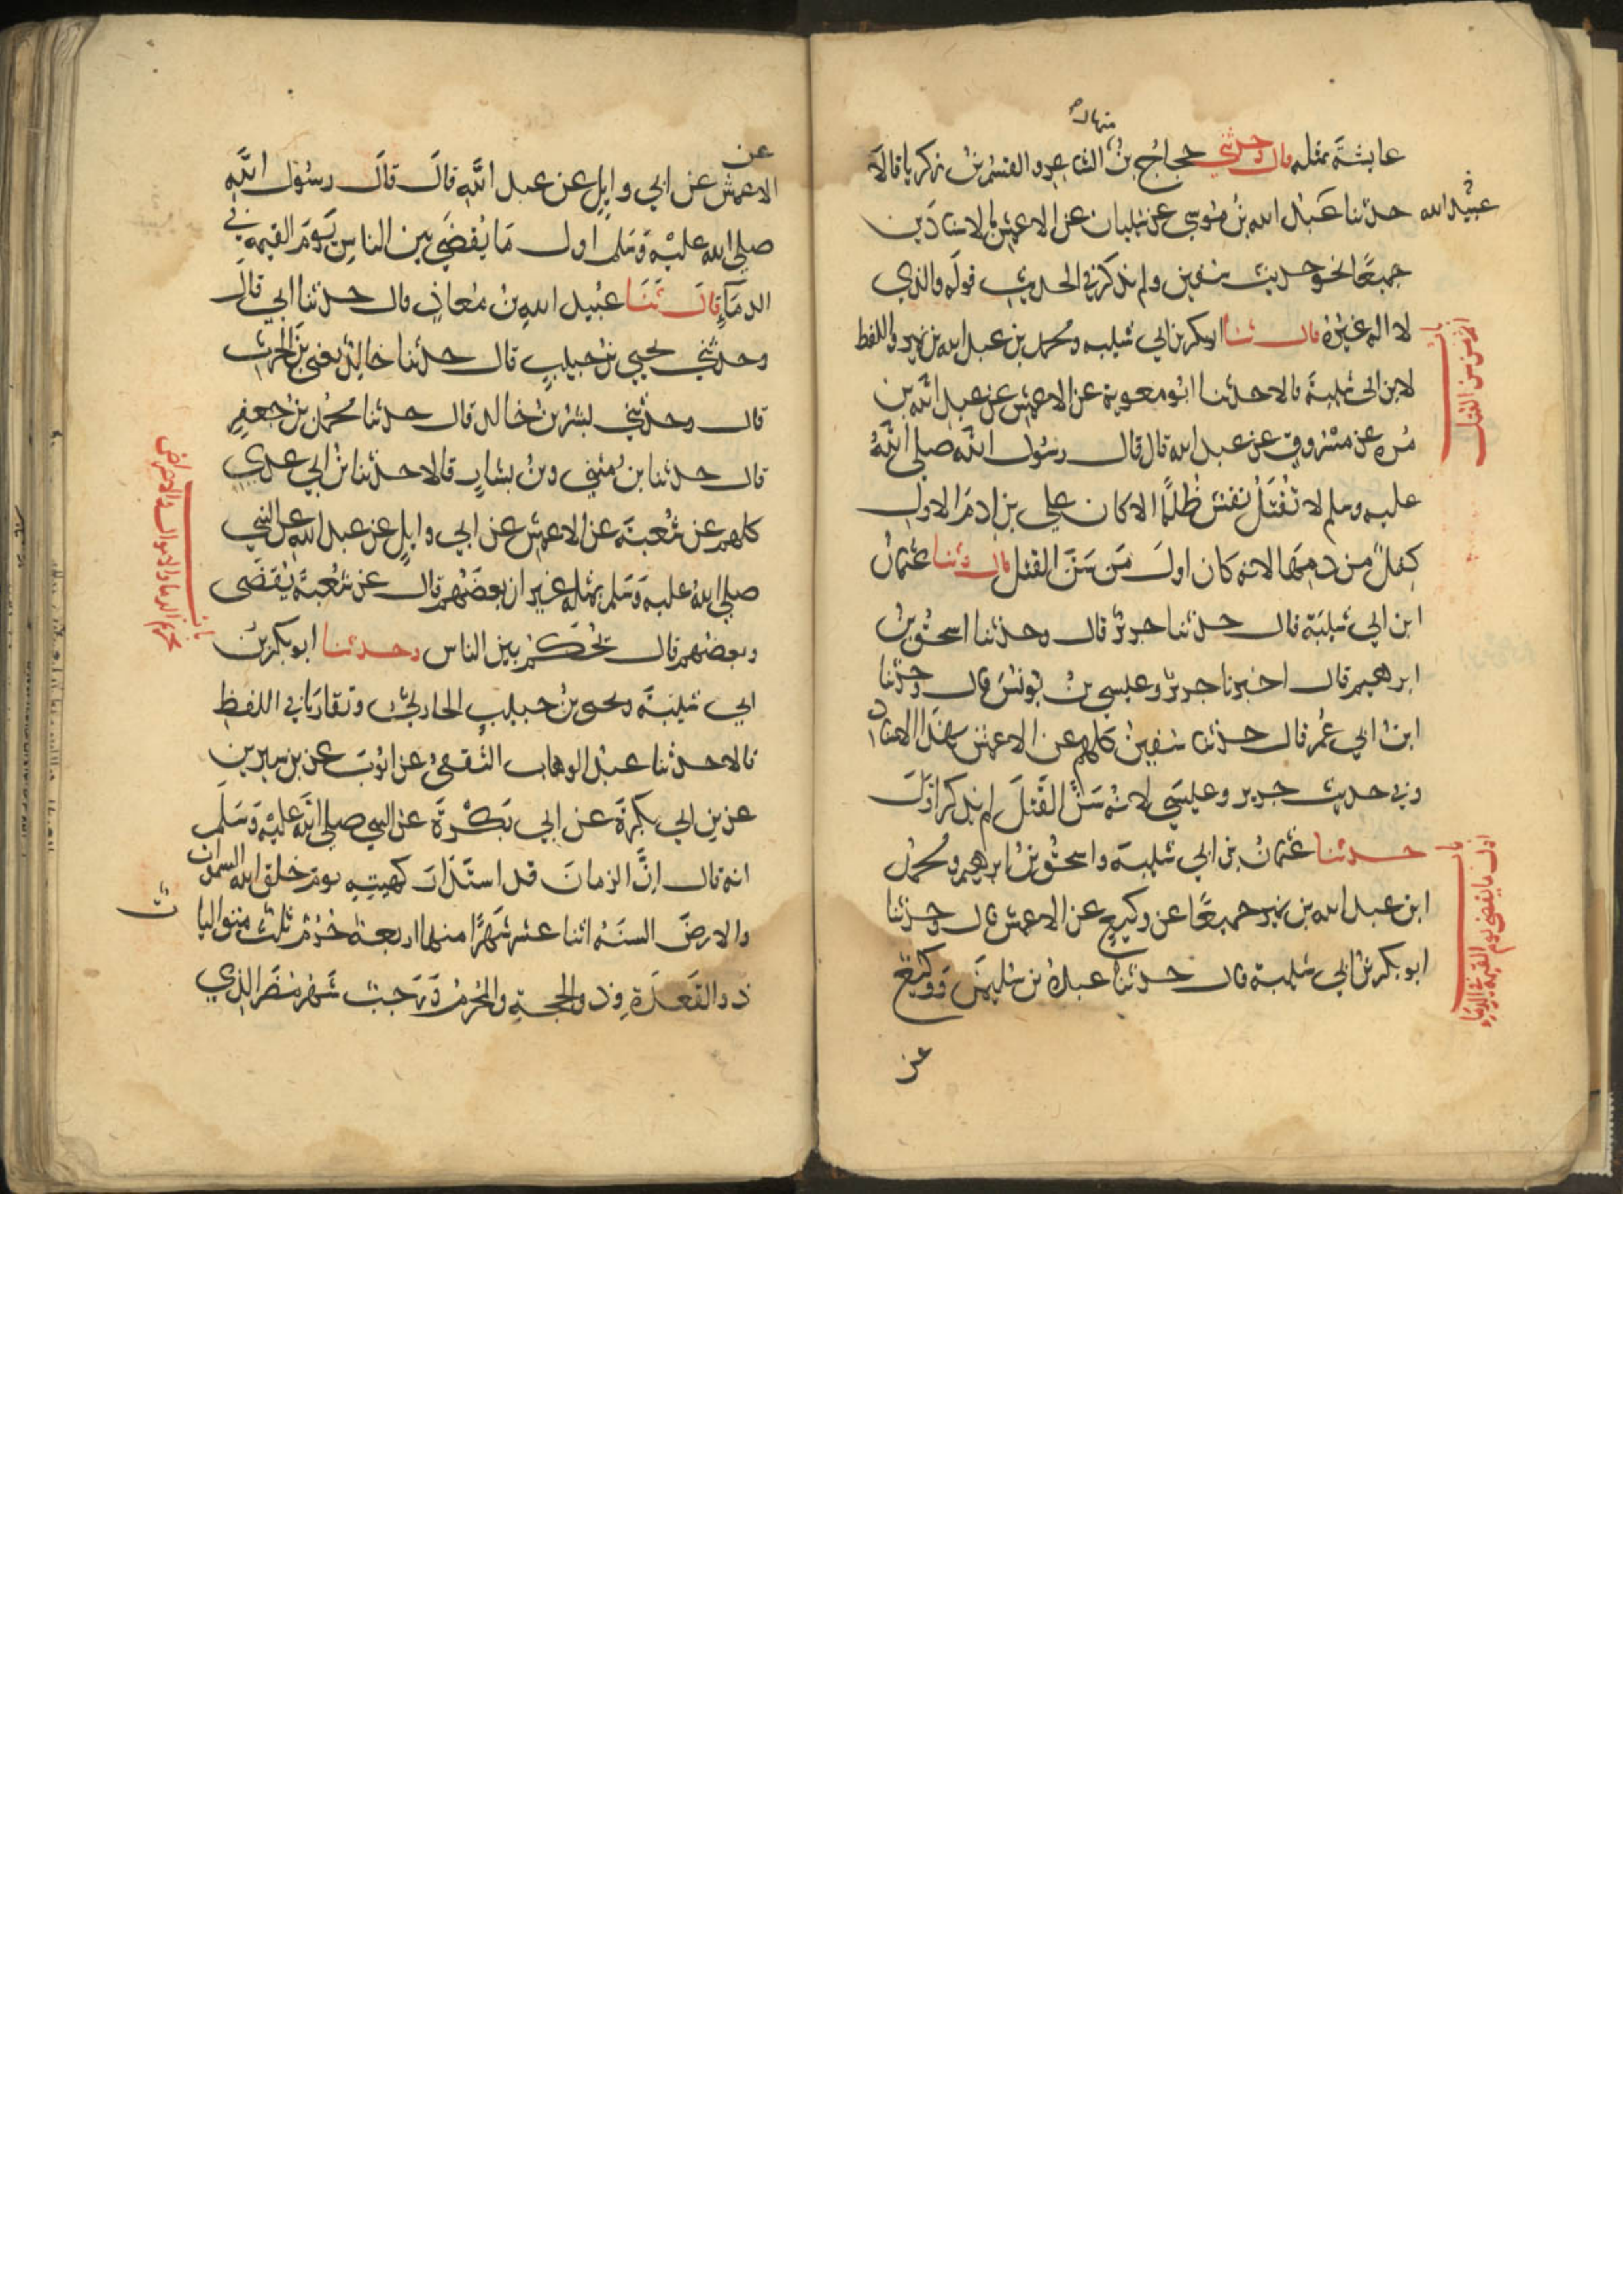 منهال
عايشة بمثله قال وحدثني حجاج بن الشاعر والقسم بن زكريا قالا
عبيد الله
حدثنا عبد الله بن موسى عن شيبان عن الاعمش بالاسنادين
جميعا نحو حديث سفين ولم يذكر في الحديث قوله والذي
لا اله غيره قال ثنا ابو بكر بن ابي شيبه ومحمد بن عبد الله بن نمير واللفظ
باب
اثم من سن القتل
لابن ابي شيبة قالا حدثنا ابو معوية عن الاعمش عن عبد الله بن
مره عن مسروق عن عبد الله قال قال رسول الله صلى الله
عليه وسلم لا تقتل نفس ظلما الا كان على بن ادم الاول
كفل من دمها لانه كان اول من سن القتل قال وثنا عثمن
ابن ابي شيبة قال حدثنا جرير قال وحدثنا اسحق بن
ابرهيم قال اخبرنا جرير وعيسى بن يونس قال وحدثنا
ابن ابي عمر قال حدثنا سفين كلهم عن الاعمش بهذا الاسناد
وفي حديث جرير وعيسى لانه سن القتل لم يذكرا اول
حدثنا عثمن بن ابي شيبة واسحق بن ابرهيم ومحمد
باب
اول ما يقضى يوم القيمة في الدماء
ابن عبد الله بن نمير جميعا عن وكيع عن الاعمش قال وحدثنا
ابو بكر بن ابي شيبة قال حدثنا عبدة بن سليمن ووكيع
عن
عن
الاعمش عن ابي وايل عن عبد الله قال قال رسول الله
صلى الله عليه وسلم اول ما يقضى بين الناس يوم القيمة في
الدماء قال ثنا عبيد الله بن معاذ قال حدثنا ابي قال
وحدثني يحيى بن حبيب قال حدثنا خالد يعني بن الحرث
قال وحدثني بشر بن خالد قال حدثنا محمد بن جعفر
قال حدثنا بن مثنى وبن بشار قالا حدثنا بن ابي عدي
كلهم عن شعبة عن الاعمش عن ابي وايل عن عبد الله عن النبي
صلى الله عليه وسلم بمثله غير ان بعضهم قال عن شعبة يقضى
وبعضهم قال يحكم بين الناس وحدثنا ابو بكر بن
باب
تحريم الدماء والاموال والاعراض
ابي شيبة ويحيى بن حبيب الحارثي وتقاربا في اللفظ
قالا حدثنا عبد الوهاب الثقفي عن ايوب عن بن سيرين
عن بن ابي بكرة عن ابي بكرة عن النبي صلى الله عليه وسلم
انه قال ان الزمان قد استدار كهيته يوم خلق الله السموت
والارض السنه اثنا عشر شهرا منها اربعة حرم ثلث متواليا
ت
ذو القعدة وذو الحجة والمحرم ورجب شهر مضر الذي